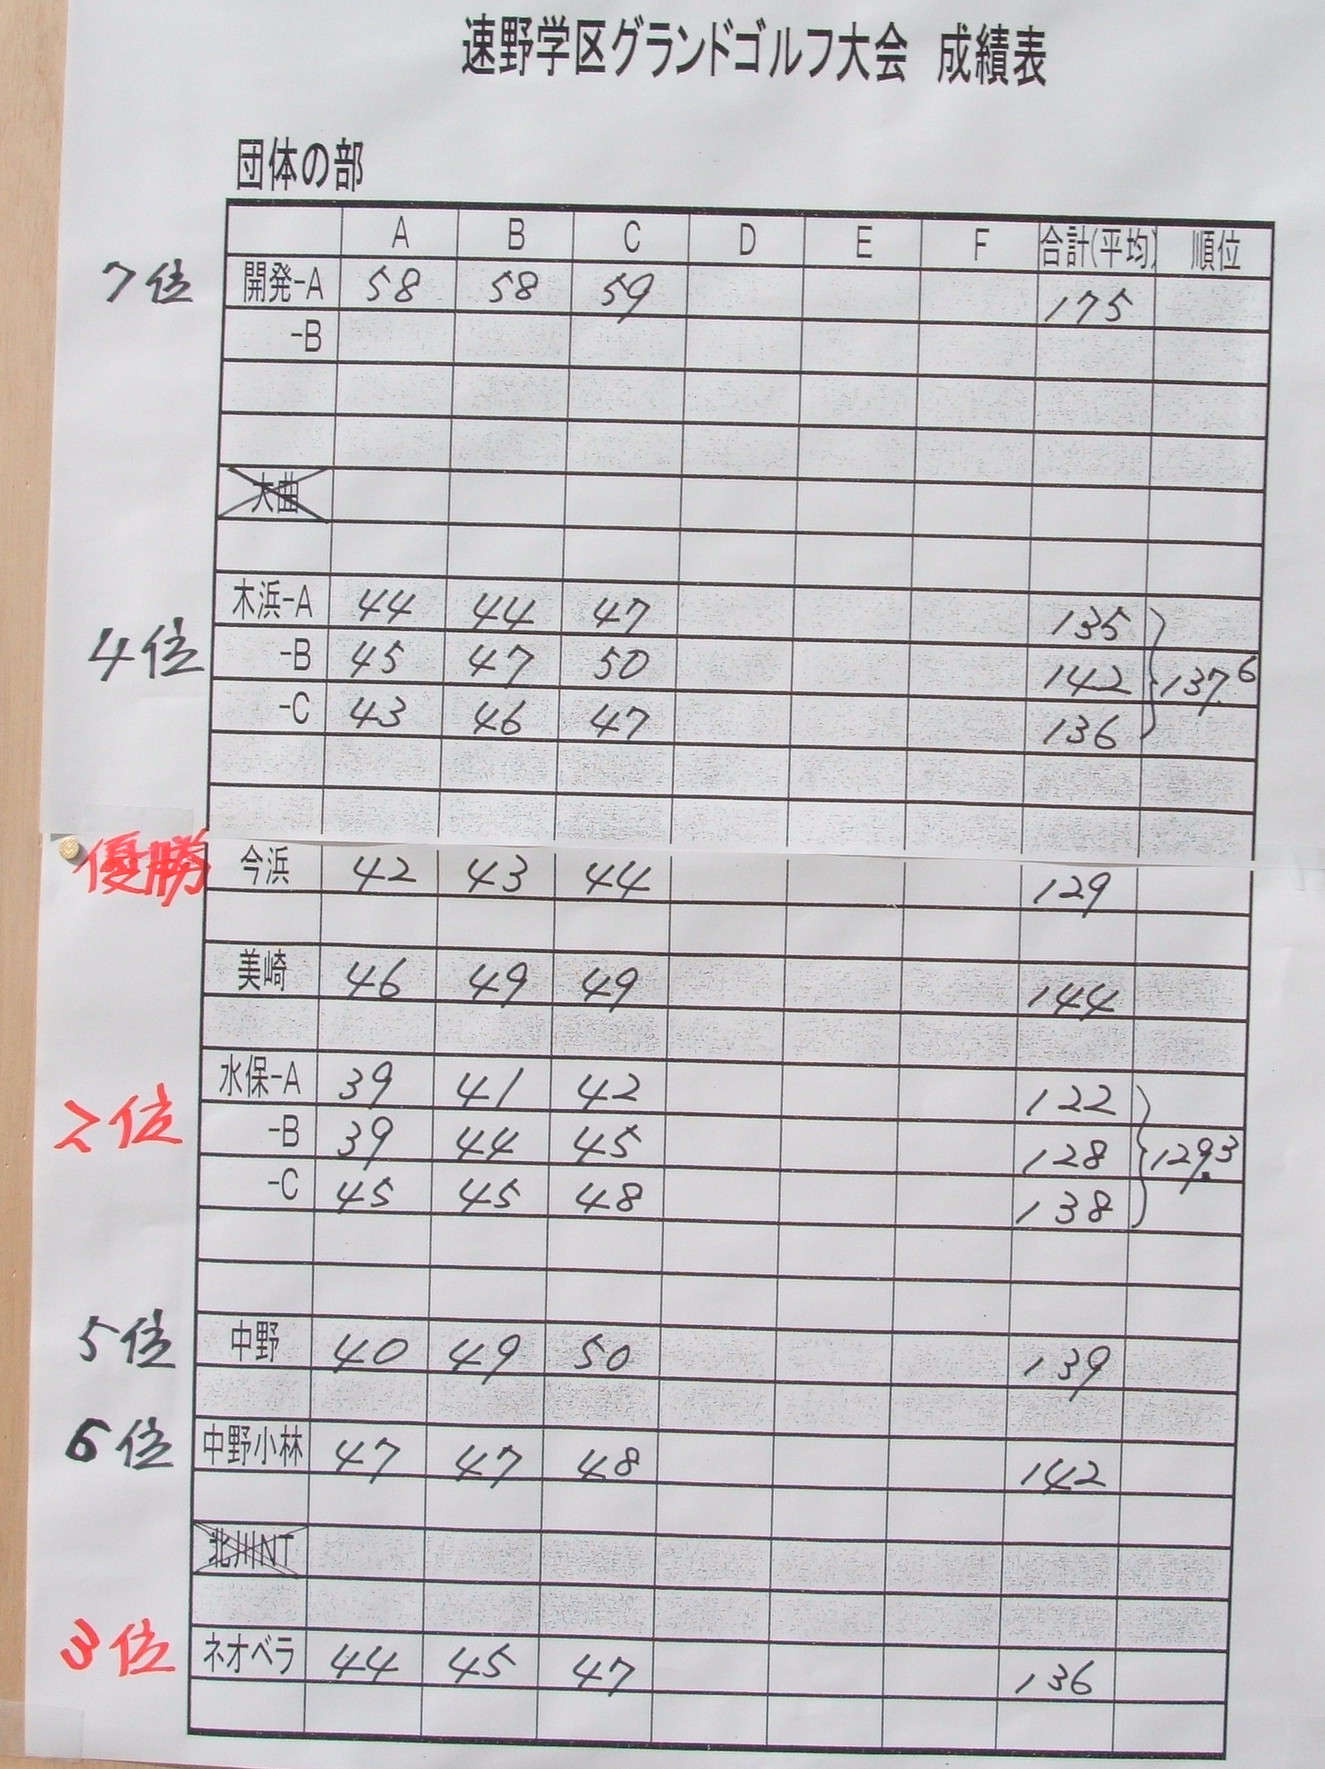 速野学区グランドゴルフ大会 成績表
団体の部
A B C D E F 合計(平均) 順位
7位 開発-A 58 58 59 175
-B
大曲
木浜-A 44 44 47 135
4位 -B 45 47 50 142 137.6
-C 43 46 47 136
優勝 今浜 42 43 44 129
美崎 46 49 49 144
水保-A 39 41 42 122
2位 -B 39 44 45 128 129.3
-C 45 45 48 138
5位 中野 40 49 50 139
6位 中野小林 47 47 48 142
北川NT
3位 ネオベラ 44 45 47 136